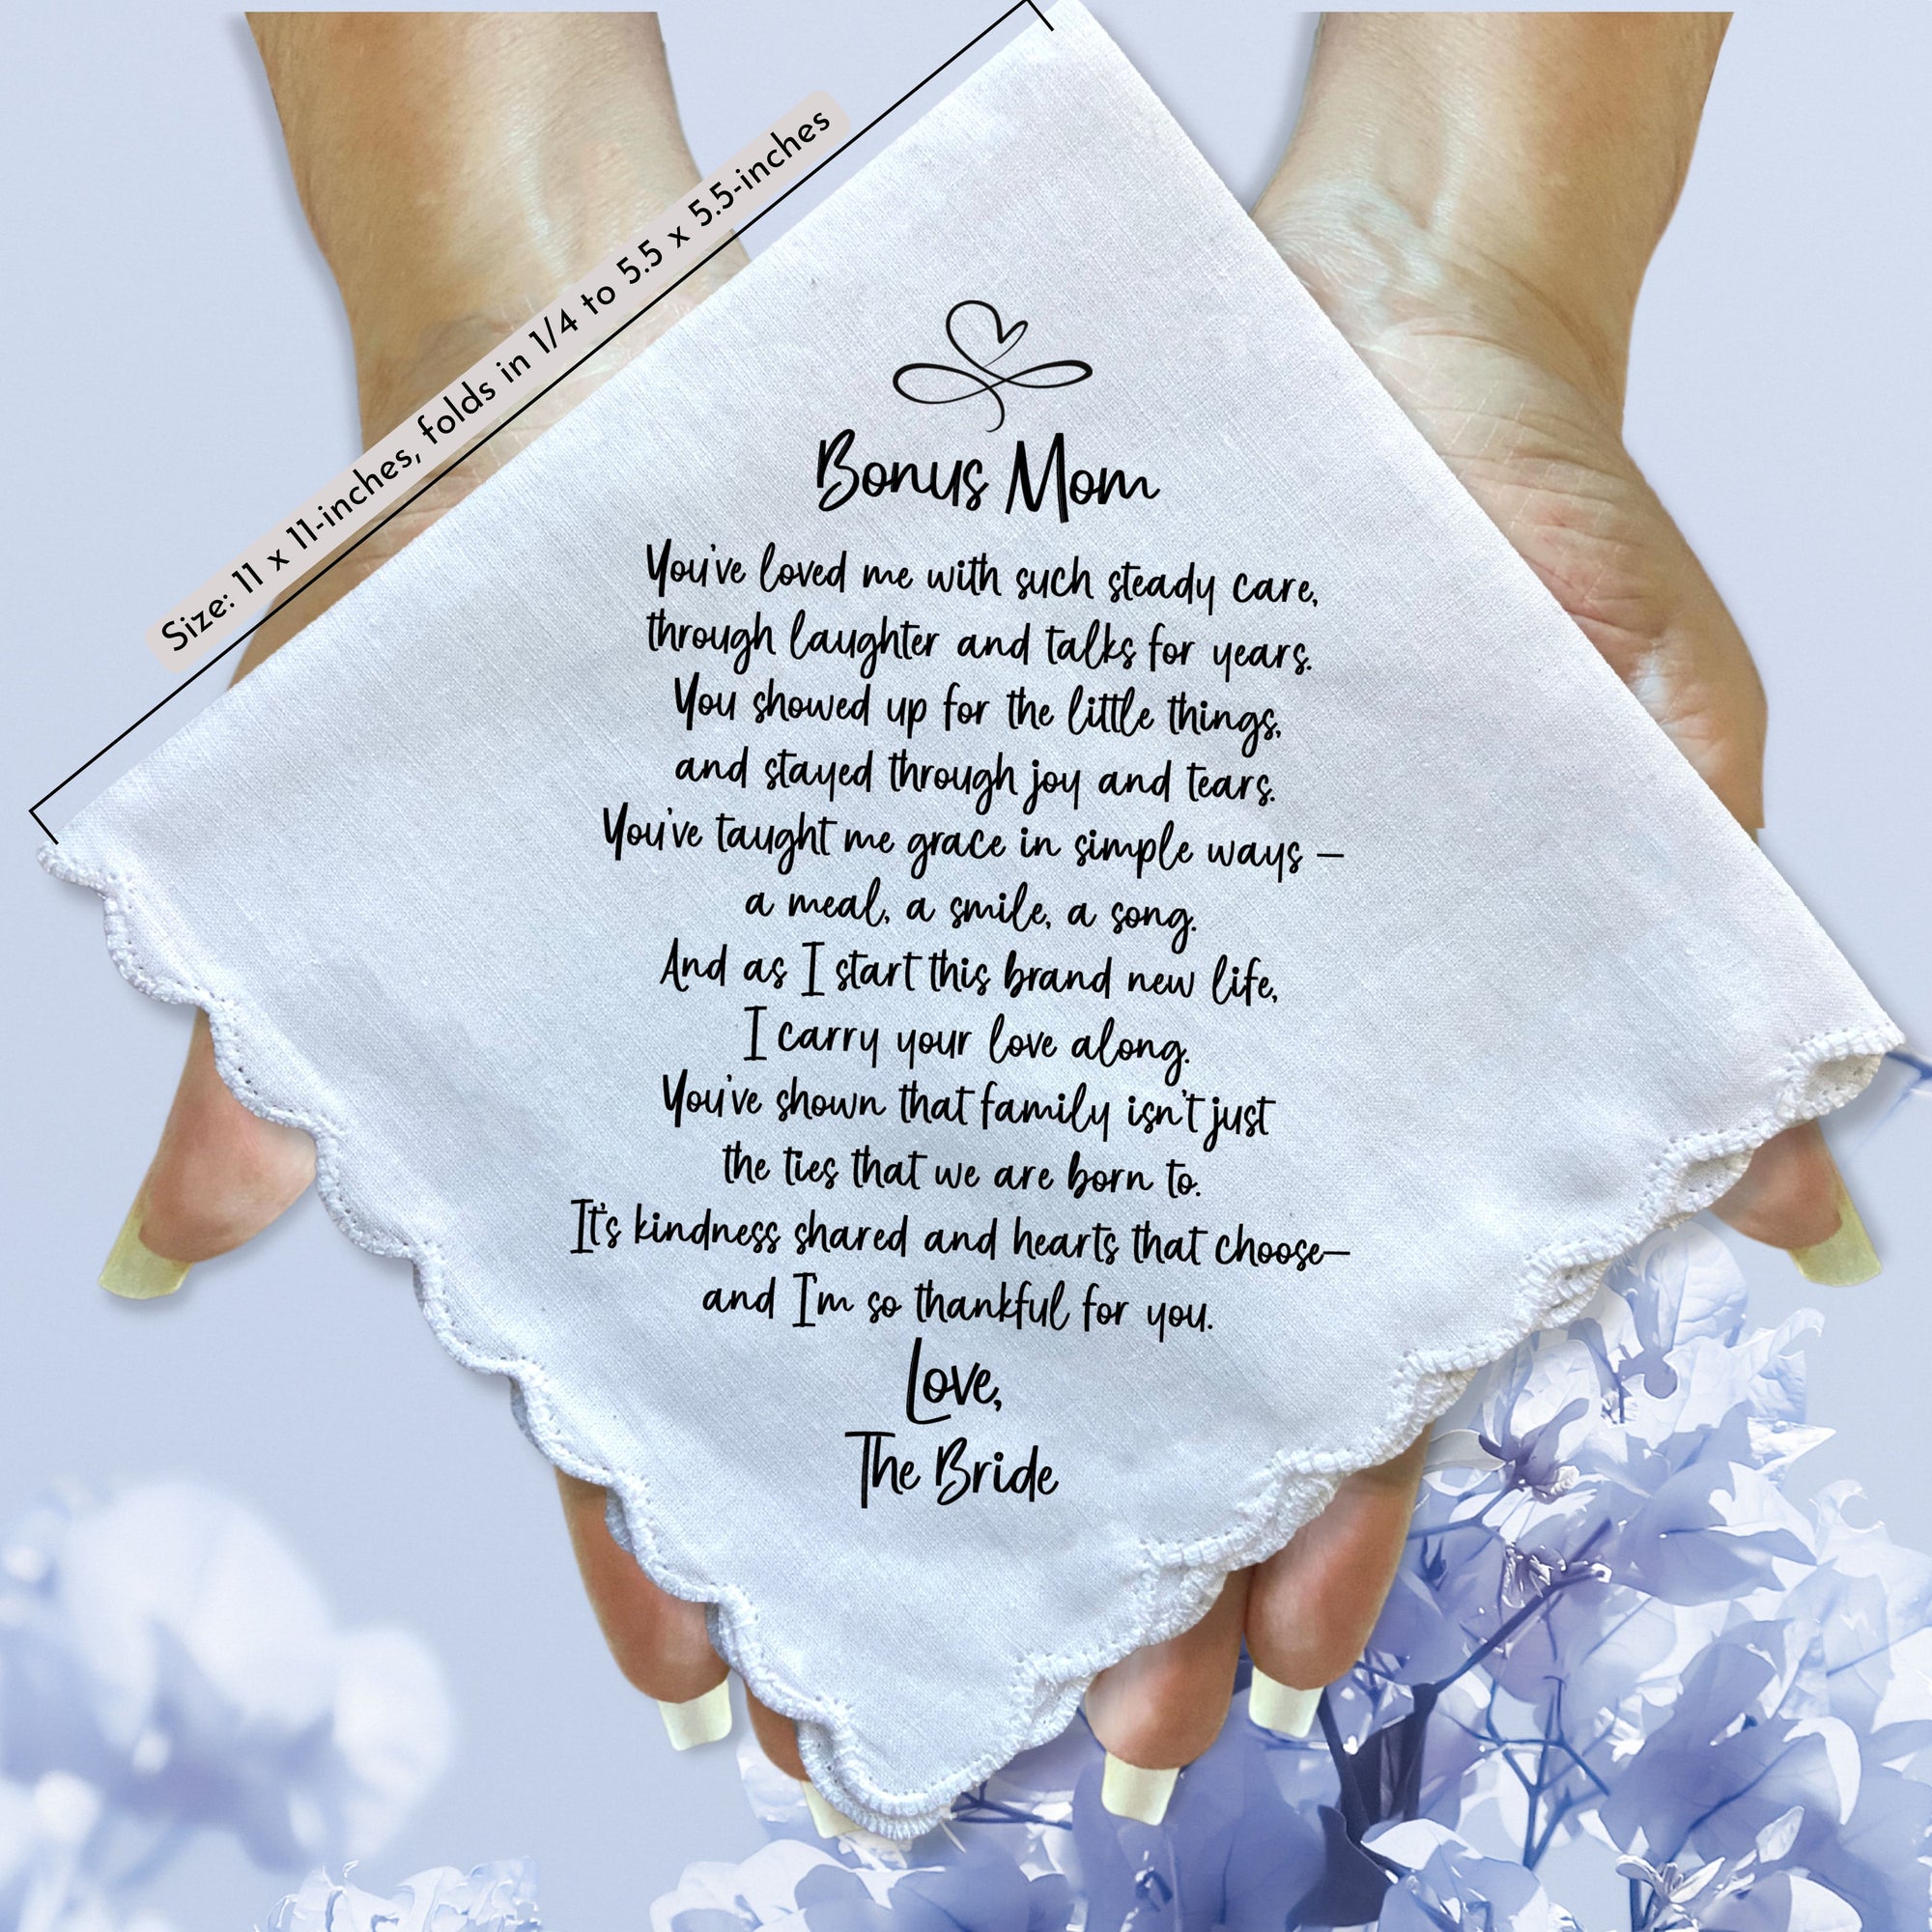 Size: 11 x 11-inches, folds in 1/4 to 5.5 x 5.5-inches
Bonus Mom
You've loved me with such steady care,
through laughter and talks for years.
You showed up for the little things,
and stayed through joy and tears.
You've taught me grace in simple ways –
a meal, a smile, a song.
And as I start this brand new life,
I carry your love along.
You've shown that family isn't just
the ties that we are born to.
It's kindness shared and hearts that choose–
and I'm so thankful for you.
Love,
The Bride